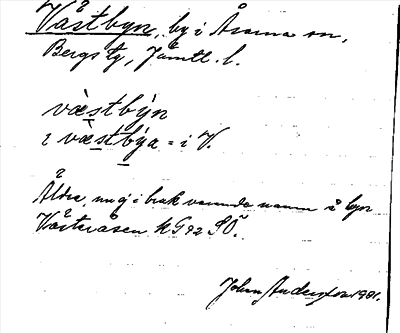 Västbyn, by i Åsarna sn,
Bergs tg, Jämtl. l.
væ̀stby̅n
i væ̀stby̅a = i V.
Äldre, nu ej i bruk varande namn å byn
Västeråsen KG 92 SÖ.
John Andersson 1901.